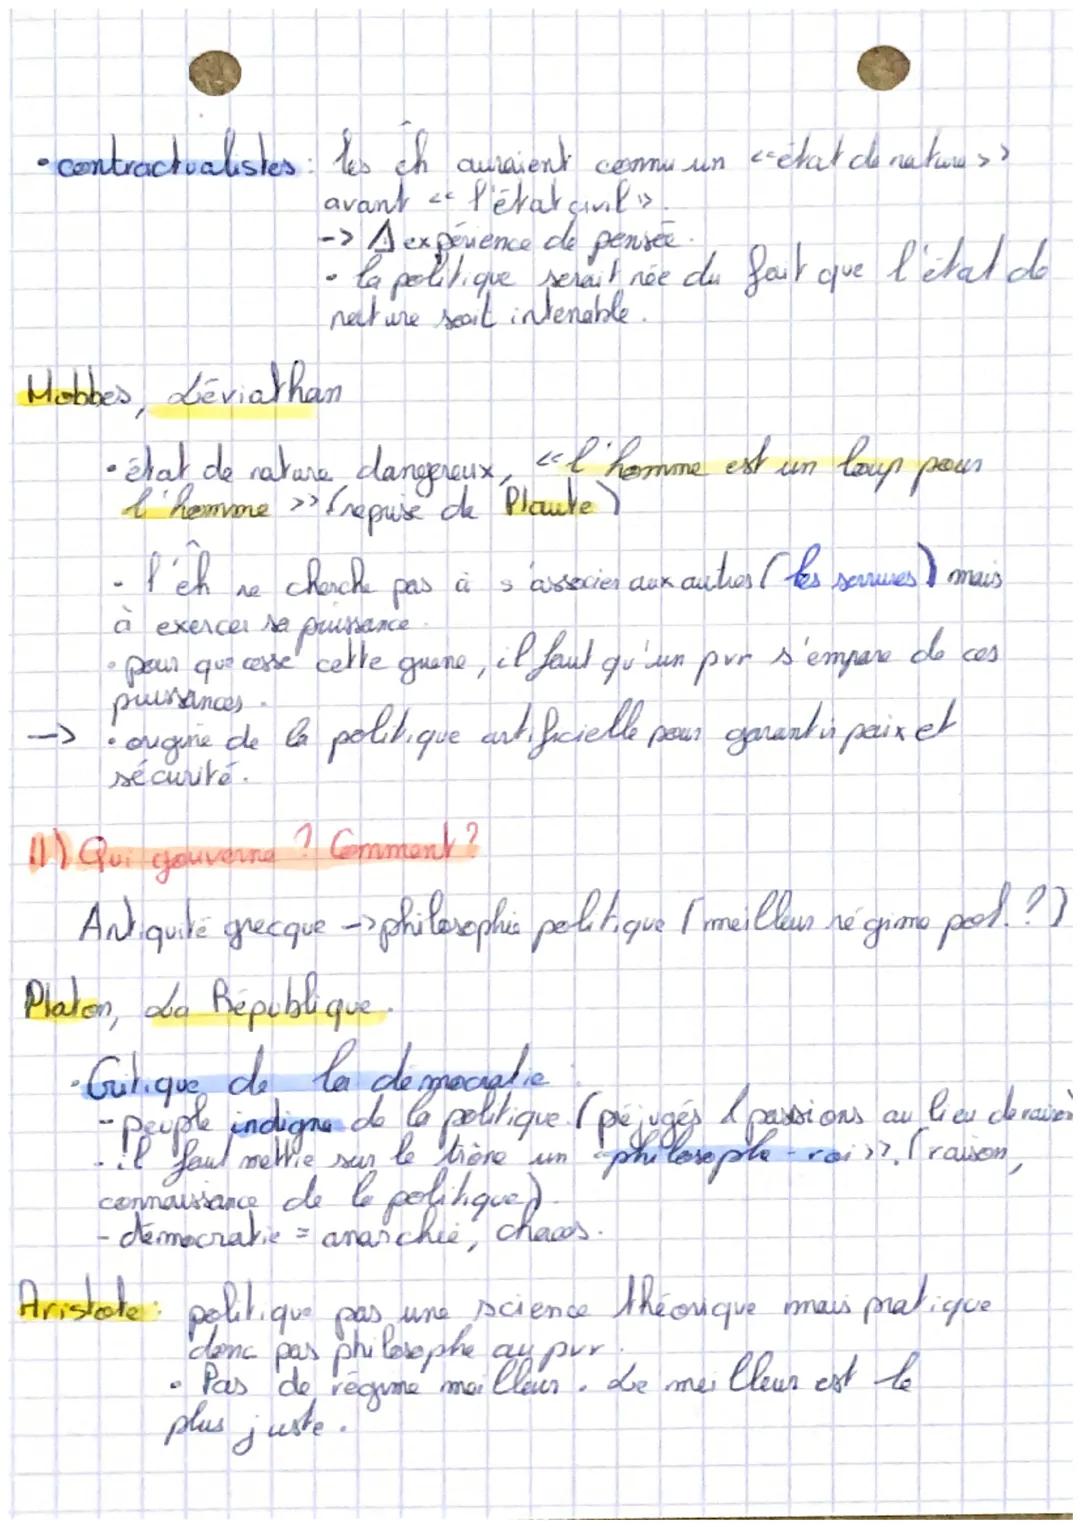 • contractualistes : les êh auraient connu un << état de nature >>
avant << l'état civil >>.
-> Δ expérience de pensée.
• la politique serait née du fait que l'état de
nature serait intenable.
Hobbes, Léviathan
• état de nature dangereux, << l'homme est un loup pour
l'homme >> (reprise de Plaute)
- l'êh ne cherche pas à s'associer aux autres (les serrures) mais
à exercer sa puissance.
• pour que cesse cette guerre, il faut qu'un pvr s'empare de ces
puissances.
-> • origine de la politique artificielle pour garantir paix et
sécurité.
II) Qui gouverne ? Comment ?
Antiquité grecque -> philosophie politique (meilleur régime pol. ?)
Platon, La République.
• Critique de la démocratie :
- peuple indigne de la politique (préjugés & passions au lieu de raison
- il faut mettre sur le trône un << philosophe-roi >>. (raison,
connaissance de la politique).
- démocratie = anarchie, chaos.
Aristote : politique pas une science théorique mais pratique
donc pas philosophe au pvr.
• Pas de régime meilleur. Le meilleur est le
plus juste.